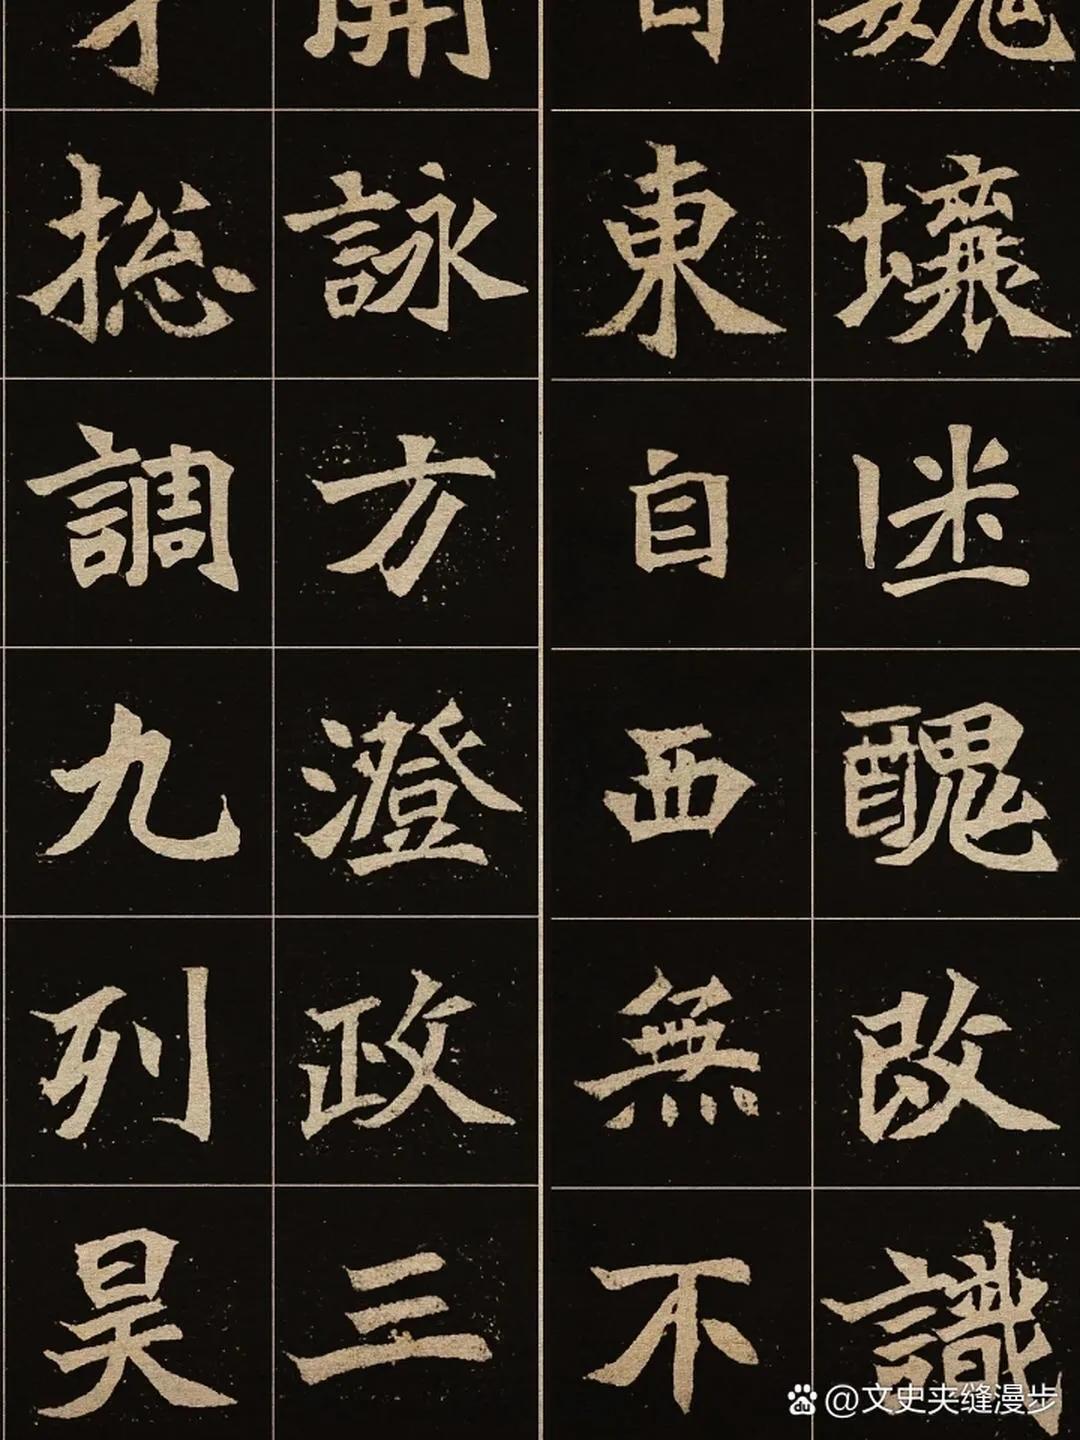 魏壤醜改識
東自西無不
開詠方澄政三
捴調九列昊
@文史夹缝漫步